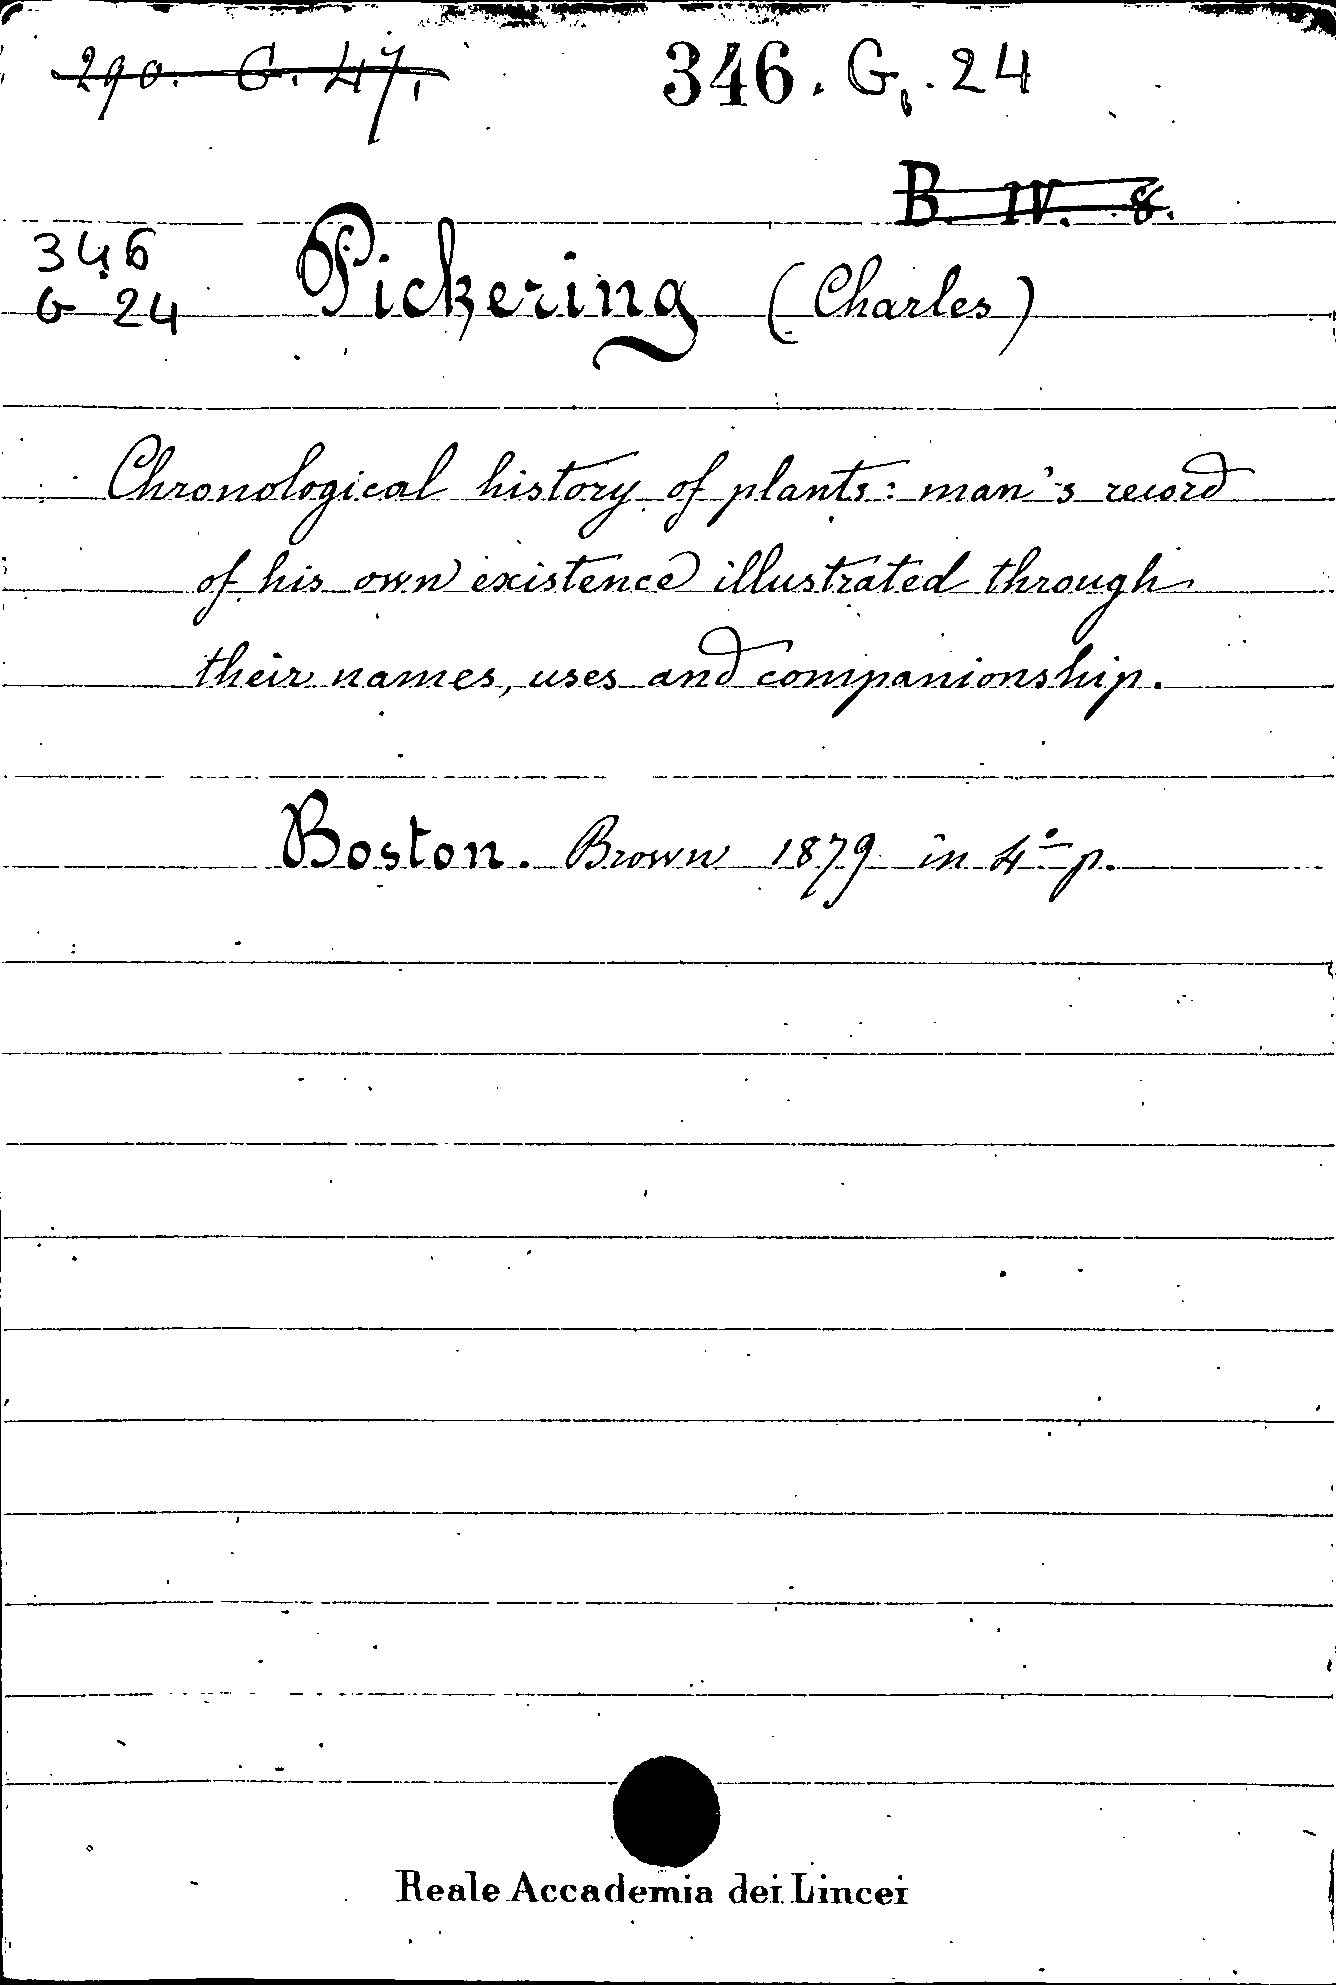 290. G. 47.
346. G. 24
B. IV. 8.
346
G 24
Pickering (Charles)
Chronological history of plants: man's record
of his own existence illustrated through
their names, uses and companionship.
Boston. Brown 1879 in 4° p.
Reale Accademia dei Lincei